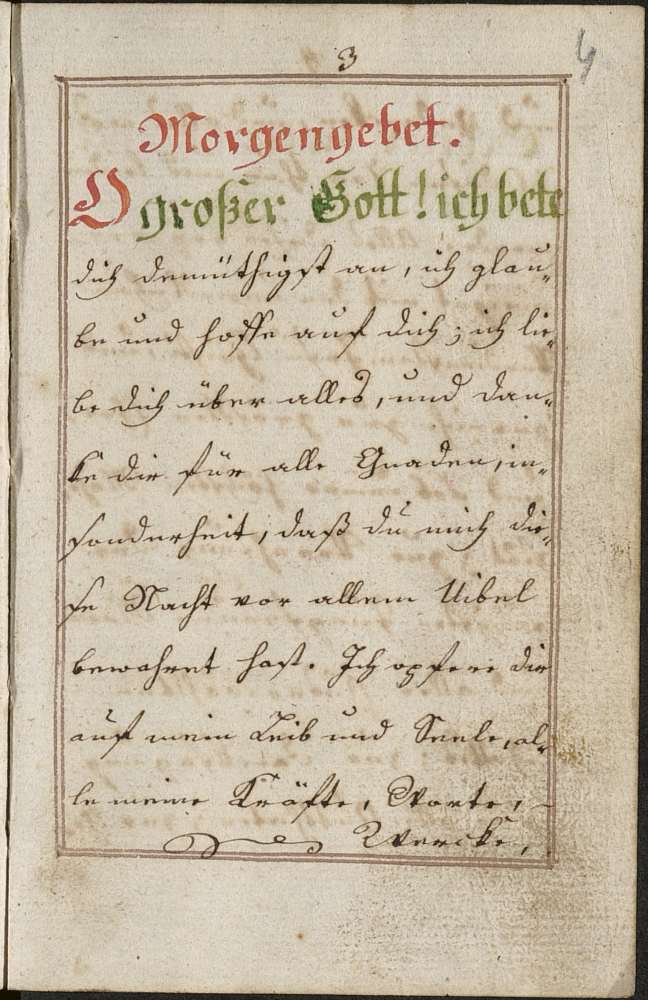 3
4
Morgengebet.
O großer Gott! ich bete
dich demüthigst an, ich glau-
be und hoffe auf dich; ich lie-
be dich über alles, und dan-
ke dir für alle Gnaden, in-
sonderheit, daß du mich die-
se Nacht vor allem Uibel
bewahret hast. Ich opfere dir
auf mein Leib und Seele, al-
le meine Kräfte, Worte,
Wercke,